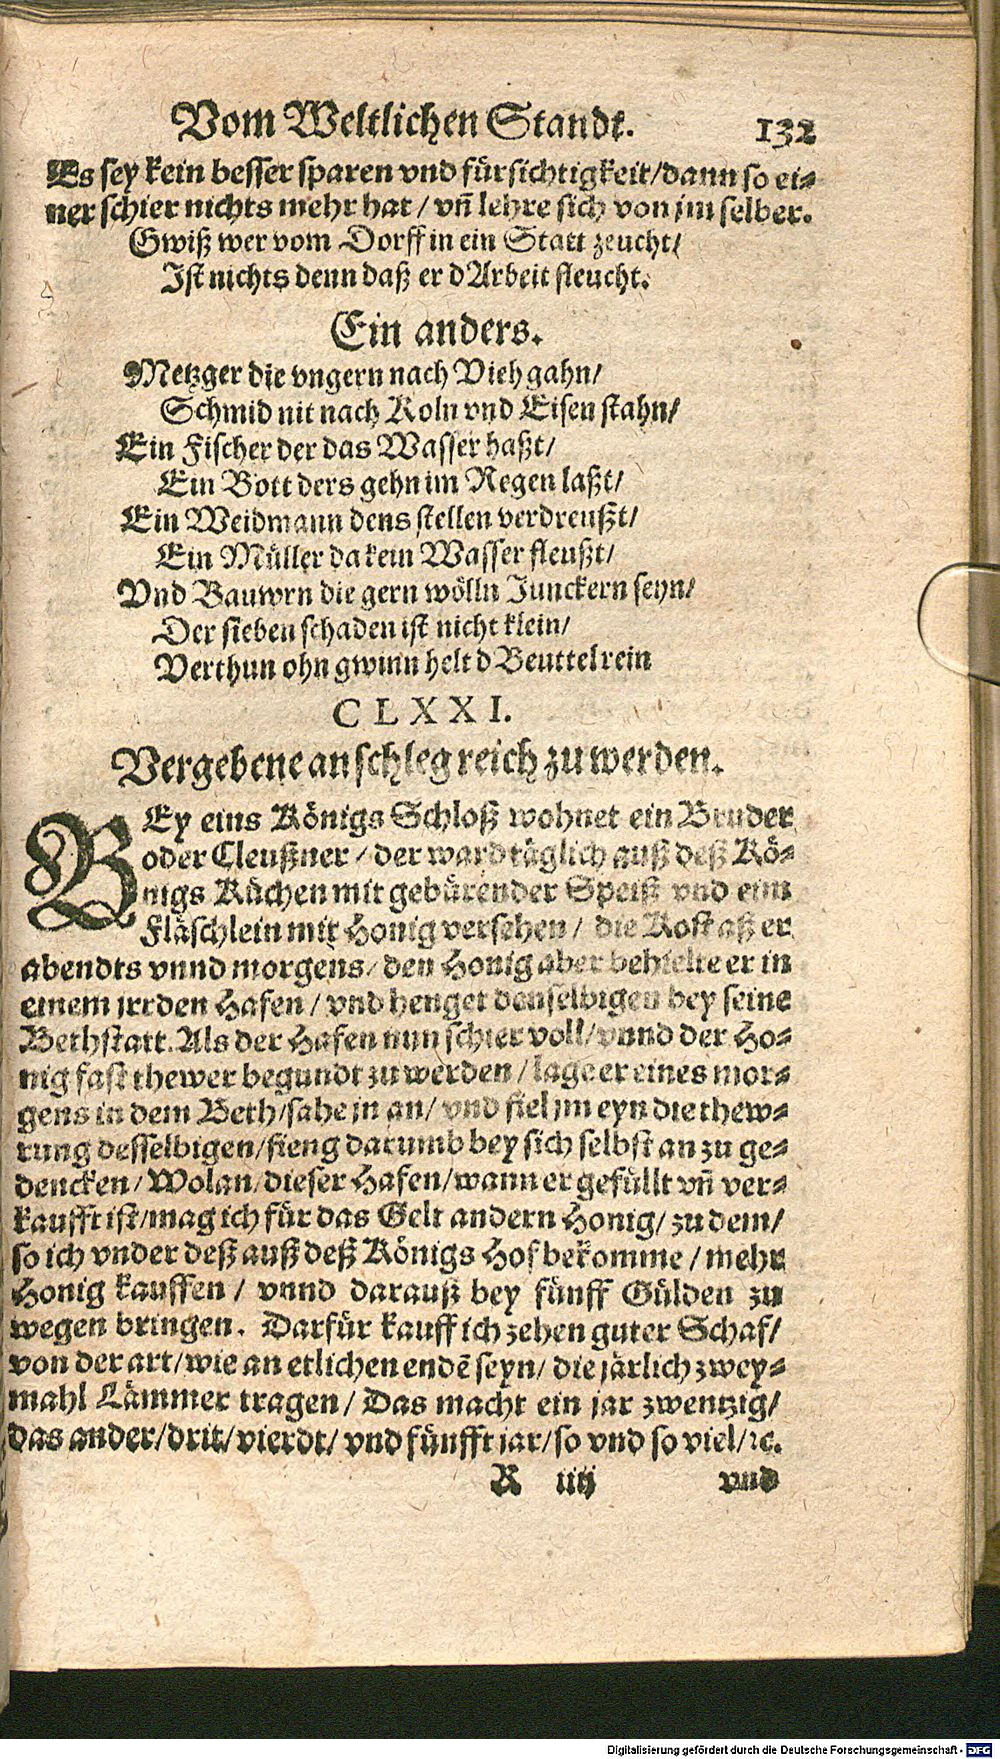 Vom Weltlichen Standt. 132
Es sey kein besser sparen vnd fürsichtigkeit/dann so ei-
ner schier nichts mehr hat / vñ lehre sich von jm selber.
Gwiß wer vom Dorff in ein Statt zeucht/
Ist nichts denn daß er d Arbeit fleucht.
Ein anders.
Metzger die vngern nach Vieh gahn/
Schmid nit nach Koln vnd Eisen stahn/
Ein Fischer der das Wasser haßt/
Ein Bott ders gehn im Regen laßt/
Ein Weidmann dens stellen verdreußt/
Ein Müller da kein Wasser fleußt/
Vnd Bauwrn die gern wölln Junckern seyn/
Der sieben schaden ist nicht klein/
Verthun ohn gwinn helt d Beuttel rein
CLXXI.
Vergebene anschleg reich zu werden.
BEy eins Königs Schloß wohnet ein Bruder
oder Cleußner / der ward täglich auß deß Kö-
nigs Küchen mit gebürender Speiß vnd eim
Fläschlein mit Honig versehen / die Kost aß er
abendts vnnd morgens/ den Honig aber behielte er in
einem jrrden Hafen / vnd henget denselbigen bey seine
Bethstatt. Als der Hafen nun schier voll/ vnnd der Ho-
nig fast thewer begundt zu werden / lage er eines mor-
gens in dem Beth/sahe jn an/ vnd fiel jm eyn die thew-
rung desselbigen/fieng darumb bey sich selbst an zu ge-
dencken / Wolan/dieser Hafen/wann er gefüllt vñ ver-
kaufft ist/mag ich für das Gelt andern Honig/ zu dem/
so ich vnder deß auß deß Königs Hof bekomme / mehr
Honig kauffen / vnnd darauß bey fünff Gülden zu
wegen bringen. Darfür kauff ich zehen guter Schaf/
von der art/wie an etlichen endē seyn/ die järlich zwey-
mahl Lämmer tragen / Das macht ein jar zwentzig/
das ander/drit/vierdt/ vnd fünfft jar/so vnd so viel/ꝛc.
R iiij vnd
Digitalisierung gefördert durch die Deutsche Forschungsgemeinschaft - DFG